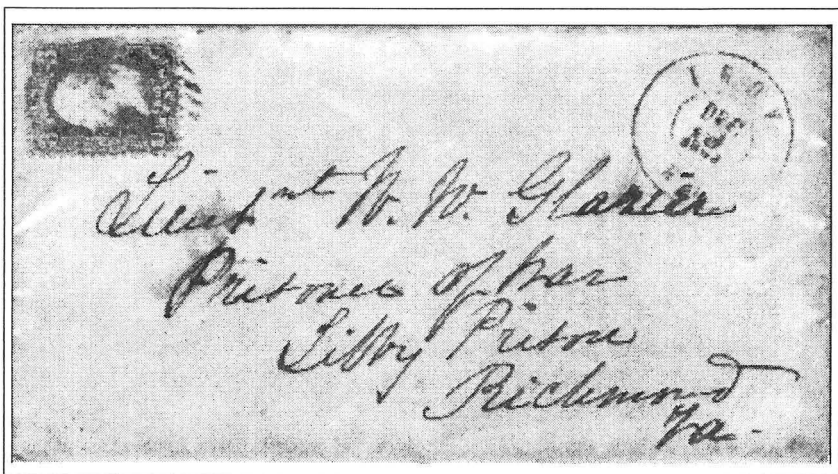 TROY
DEC
Lieutnt W. W. Glazier
Prisoner of War
Libby Prison
Richmond
Va-